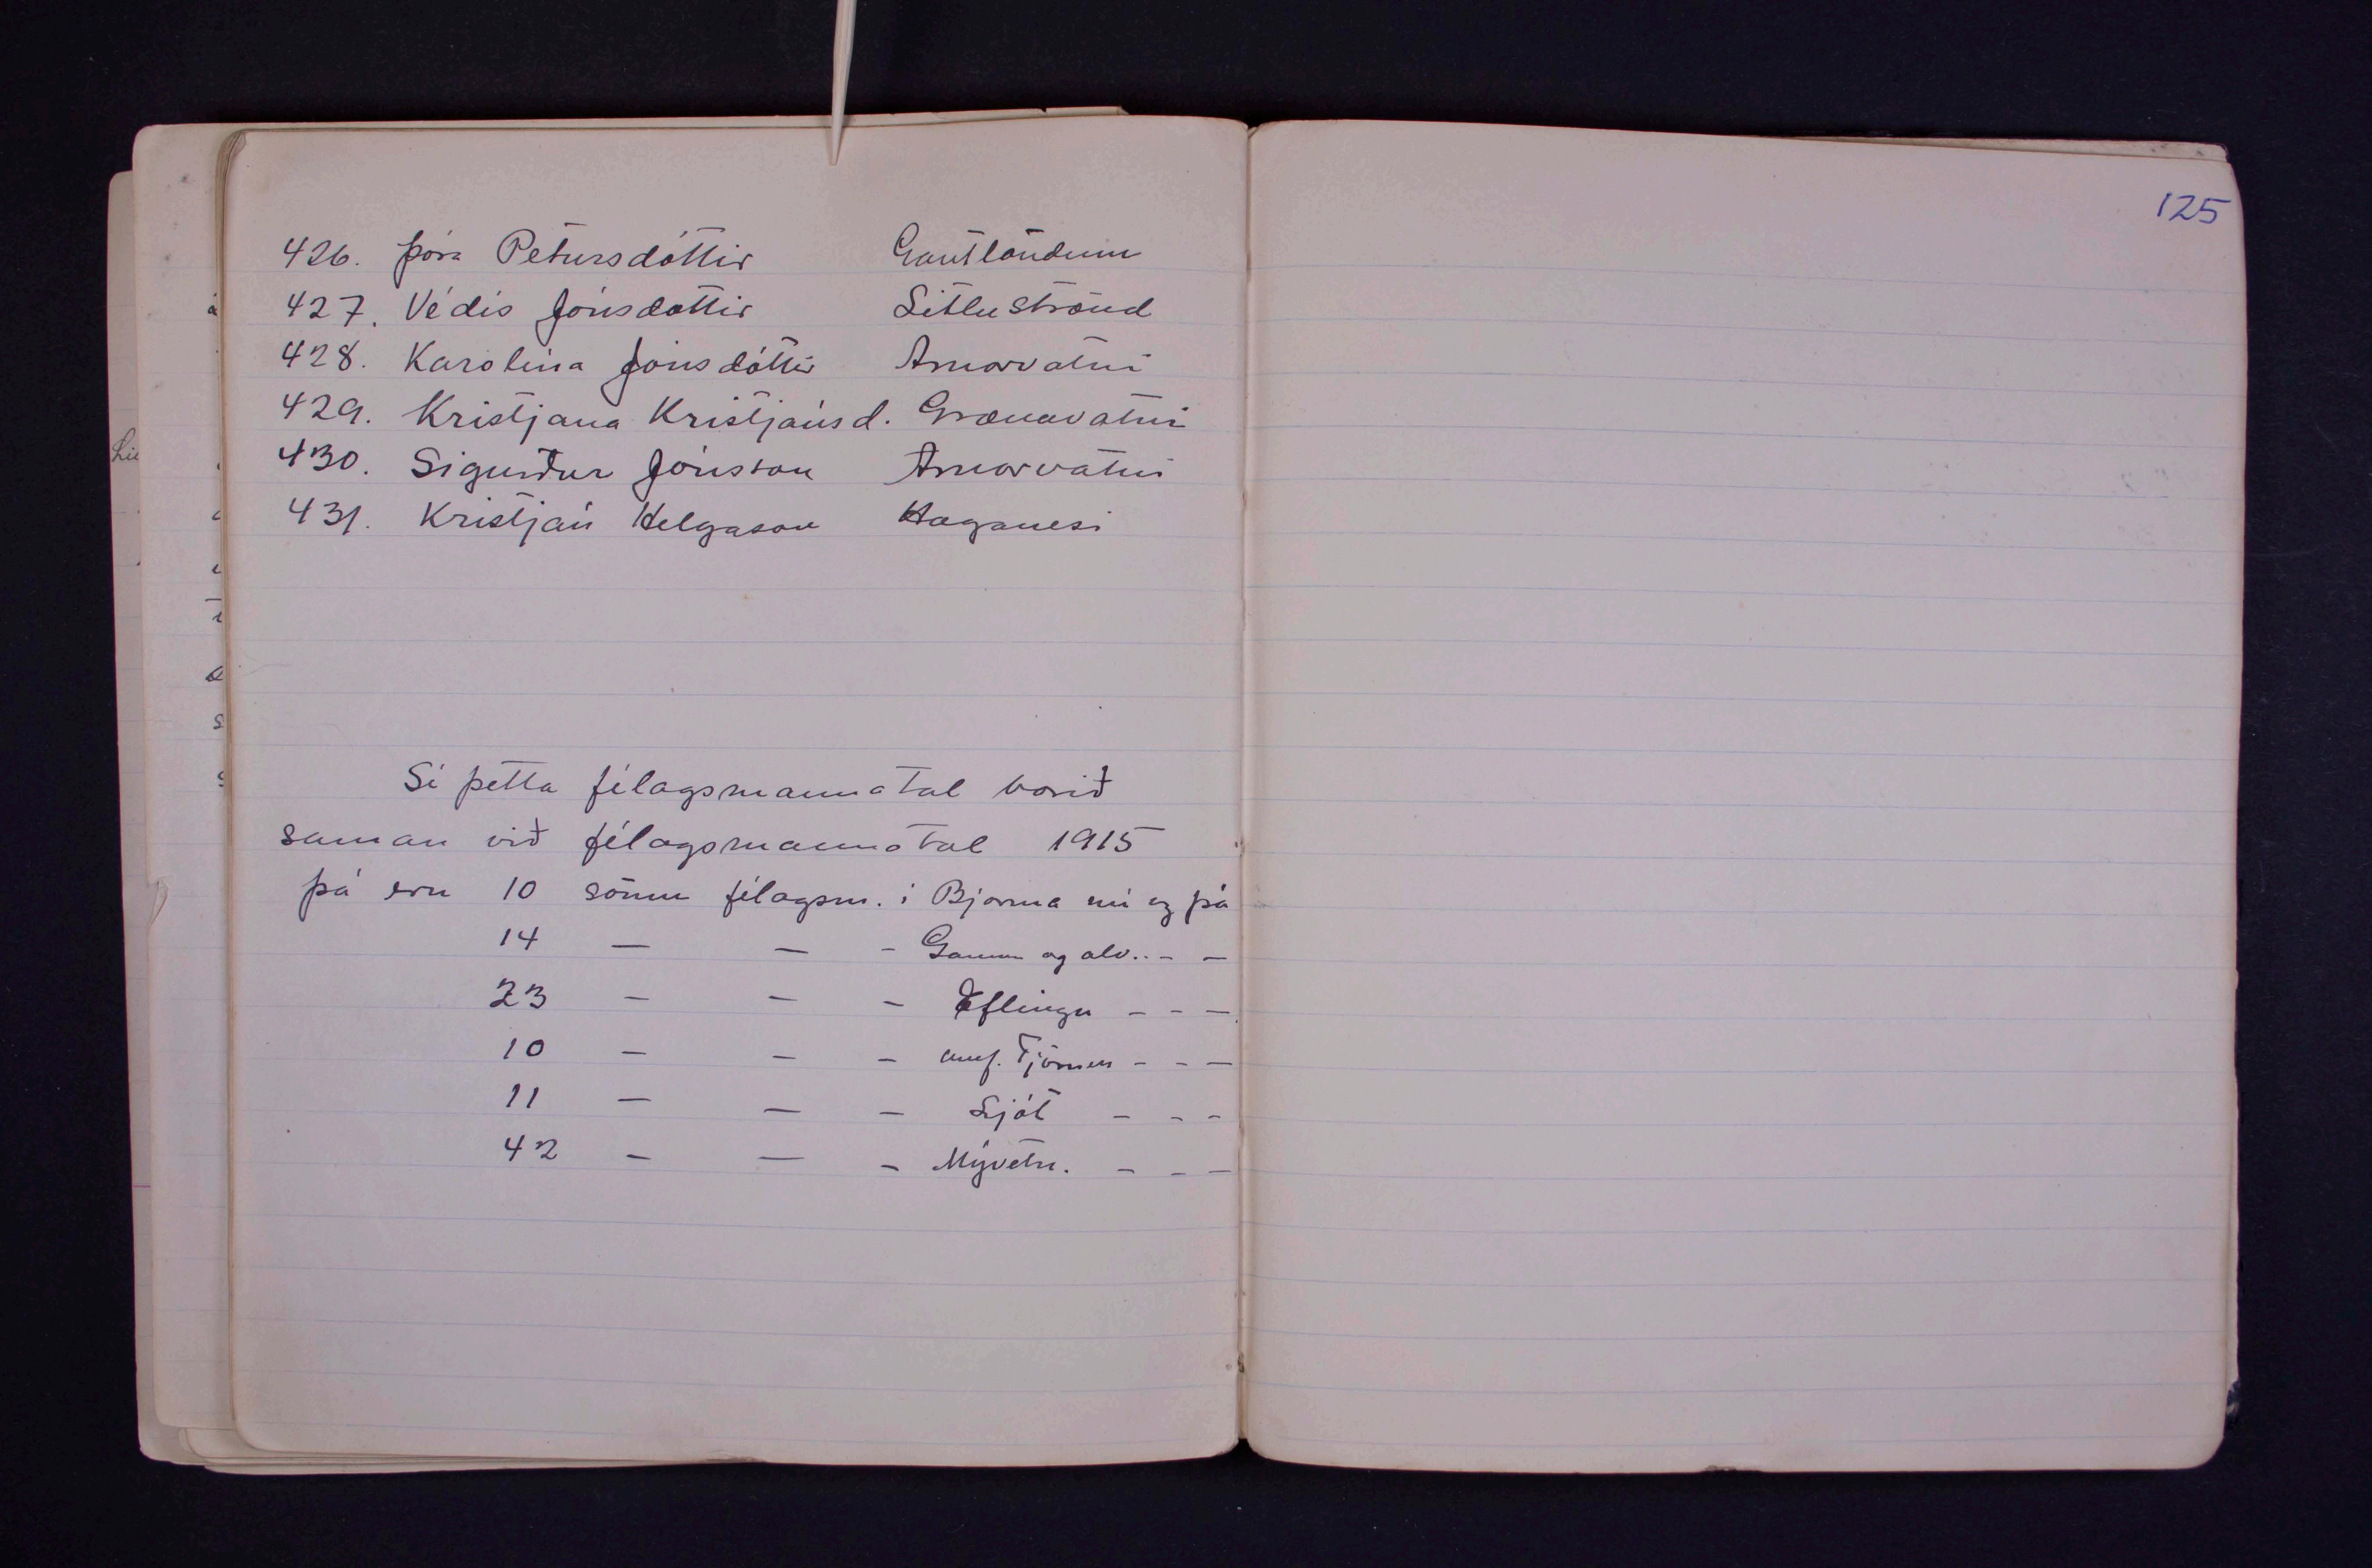 125
426. Þóra Pétursdóttir Gautlöndum
427. Védís Jónsdóttir Litluströnd
428. Karolína Jónsdóttir Arnarvatni
429. Kristjana Kristjánsd. Grænavatni
430. Sigurður Jónsson Arnarvatni
431. Kristján Helgason Haganesi
Sé þetta félagsmannatal borið
saman við félagsmannatal 1915
þá eru 10 sömu félagsm. í Bjarma nú og þá
14 — — - Gaman og alv.. - -
23 - - - Eflingu - - -
10 - - - umf. Tjörnes - - -
11 - - - Ljót - - -
42 - — - Mývetn. - - -